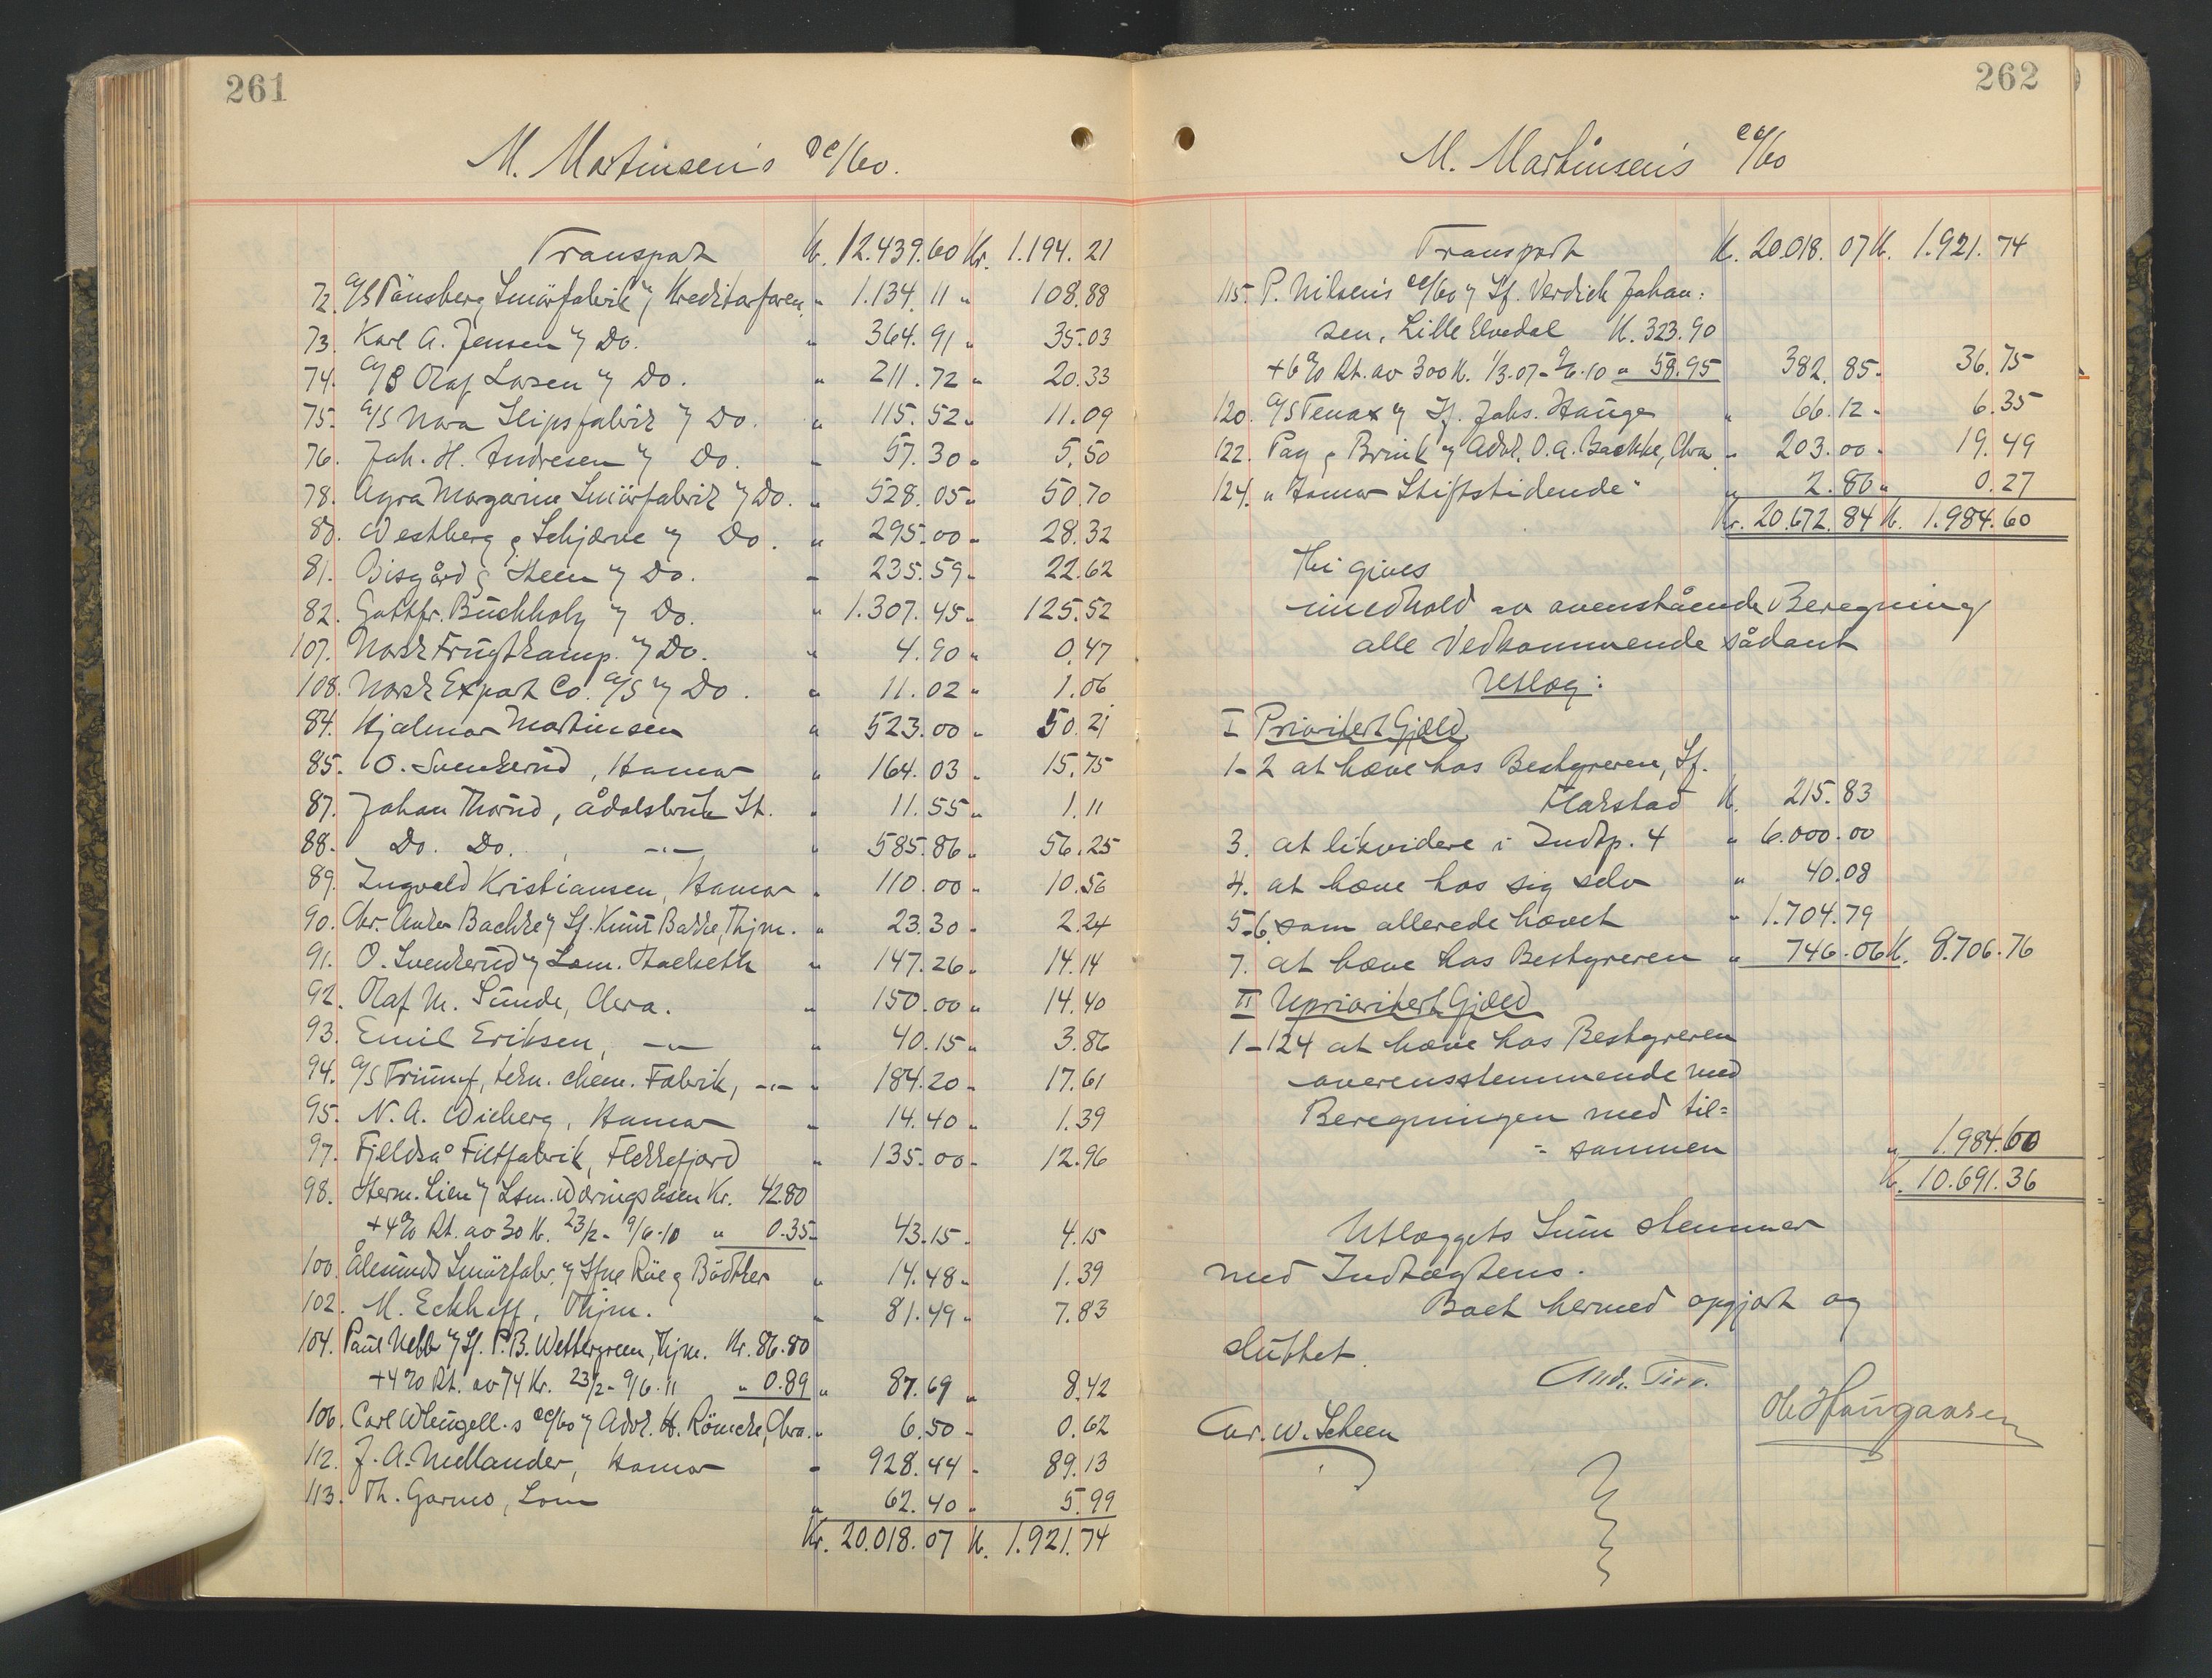 261
M. Martinsen's ce/bo.
Transport Kr. 12.439.60 Kr. 1.194.21
72. A/S Tönsberg Smörfabrik v/ Kreditorforen. " 1.134.11 " 108.88
73. Karl A. Jensen v/ Do. " 364.91 " 35.03
74. A/S Olaf Larsen v/ Do. " 211.72 " 20.33
75. A/S Nora Slipsfabrik v/ Do. " 115.52 " 11.09
76. Joh. H. Andresen v/ Do. " 57.30 " 5.50
78. Agra Margarin Smörfabrik v/ Do. " 528.05 " 50.70
80. Westberg & Schjærve v/ Do. " 295.00 " 28.32
81. Bisgård & Steen v/ Do. " 235.59 " 22.62
82. Gottfr. Buchholz v/ Do. " 1.307.45 " 125.52
107. Norsk Frugtkomp. v/ Do. " 4.90 " 0.47
108. Norsk Export Co. A/S v/ Do. " 11.02 " 1.06
84. Hjalmar Martinsen " 523.00 " 50.21
85. O. Svenkerud, Hamar " 164.03 " 15.75
87. Johan Thorud, Ådalsbruk St. " 11.55 " 1.11
88. Do. Do. , -"- " 585.86 " 56.25
89. Ingvald Kristiansen, Hamar " 110.00 " 10.56
90. Chr. Anker Bachke v/ Sf. Knut Bakke, Thjm. " 23.30 " 2.24
91. O. Svenkerud v/ Lsm. Hoelseth " 147.26 " 14.14
92. Olaf M. Sunde, Chra. " 150.00 " 14.40
93. Emil Eriksen, -"- " 40.15 " 3.86
94. A/S Triumf, tekn. chem. Fabrik, -"- " 184.20 " 17.61
95. N. A. Wieberg, Hamar " 14.40 " 1.39
97. Fjeldså Filtfabrik, Flekkefjord " 135.00 " 12.96
98. Herm. Lien v/ Lsm. Wæringsåsen Kr. 42.80
+ 4% Rt. av 30 K. 23/2 - 9/6.10 " 0.35 43.15 " 4.15
100. Ålesunds Smörfabr. v/ Sfne Röe & Bödtker " 14.48 " 1.39
102. M. Eckhoff, Thjm. " 81.49 " 7.83
104. Paul Uebb v/ Sf. P. B. Wettergreen, Thjm. Kr. 86.80
+ 4% Rt. av 74 Kr. 23/2 - 9/6.11 " 0.89 " 87.69 " 8.42
106. Carl Wengell's ce/bo v/ Advk. H. Römcke, Chra. " 6.50 " 0.62
112. J. A. Mellander, Hamar " 928.44 " 89.13
113. Th. Garmo, Lom " 62.40 " 5.99
Kr. 20.018.07 K. 1.921.74
262
M. Martinsen's ce/bo
Transport K. 20.018.07 K. 1.921.74
115. P. Nilsen's ce/bo v/ Sf. Verdich Johan:
sen, Lille Elvedal K. 323.90
+ 6% Rt. av 300 K. 1/3.07 - 9/6.10 " 58.95 382.85 " 36.75
120. A/S Tenax v/ Sf. Johs. Hauge " 66.12 " 6.35
122. Pay & Brink v/ Advk. O. A. Backke, Chra. " 203.00 " 19.49
124. "Hamar Stiftstidende" " 2.80 " 0.27
Kr. 20.672.84 K. 1.984.60
Thi gives
i medhold av ovenstående Beregning
alle Vedkommende sådant
Utlæg:
I Prioritert Gjæld
1-2 at hæve hos Bestyreren, Sf.
Hakstad K. 215.83
3. at likvidere i Indtp. 4 " 6.000.00
4. at hæve hos sig selv " 40.08
5-6. som allerede hævet " 1.704.79
7. at hæve hos Bestyreren " 746.06 K. 8.706.76
II Uprioritert Gjæld
1-124 at hæve hos Bestyreren
overensstemmende med
Beregningen med til=
= sammen " 1.984.60
K. 10.691.36
Utlæggets Sum stemmer
med Indtægtens.
Boet hermed opgjort og
sluttet.
Chr. W. Scheen